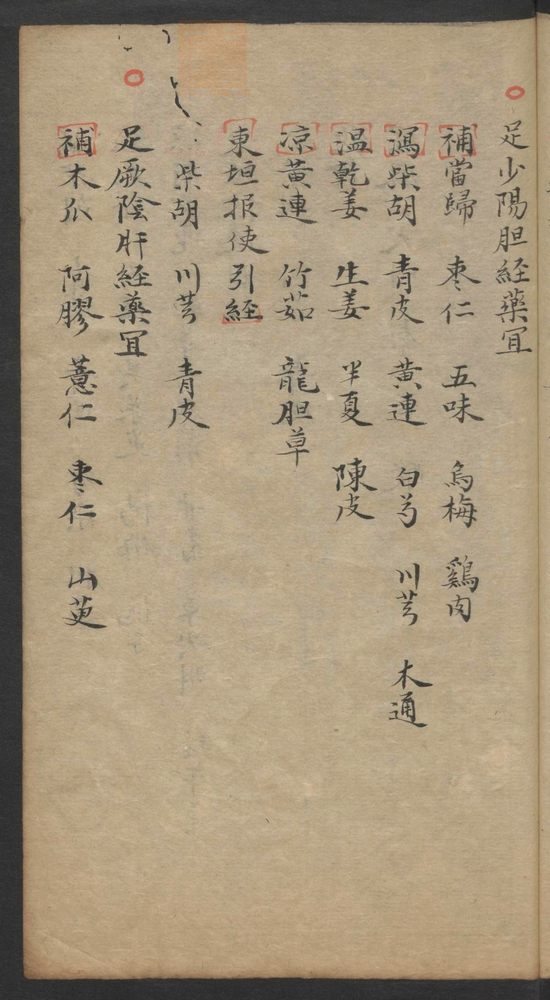 足少陽胆経藥冝
補當歸 棗仁 五味 烏梅 鷄肉
瀉柴胡 青皮 黄連 白芍 川芎 木通
温乾姜 生姜 半夏 陳皮
凉黄連 竹茹 龍胆草
東垣报使引經
柴胡 川芎 青皮
足厥陰肝経藥冝
補木瓜 阿膠 薏仁 棗仁 山萸